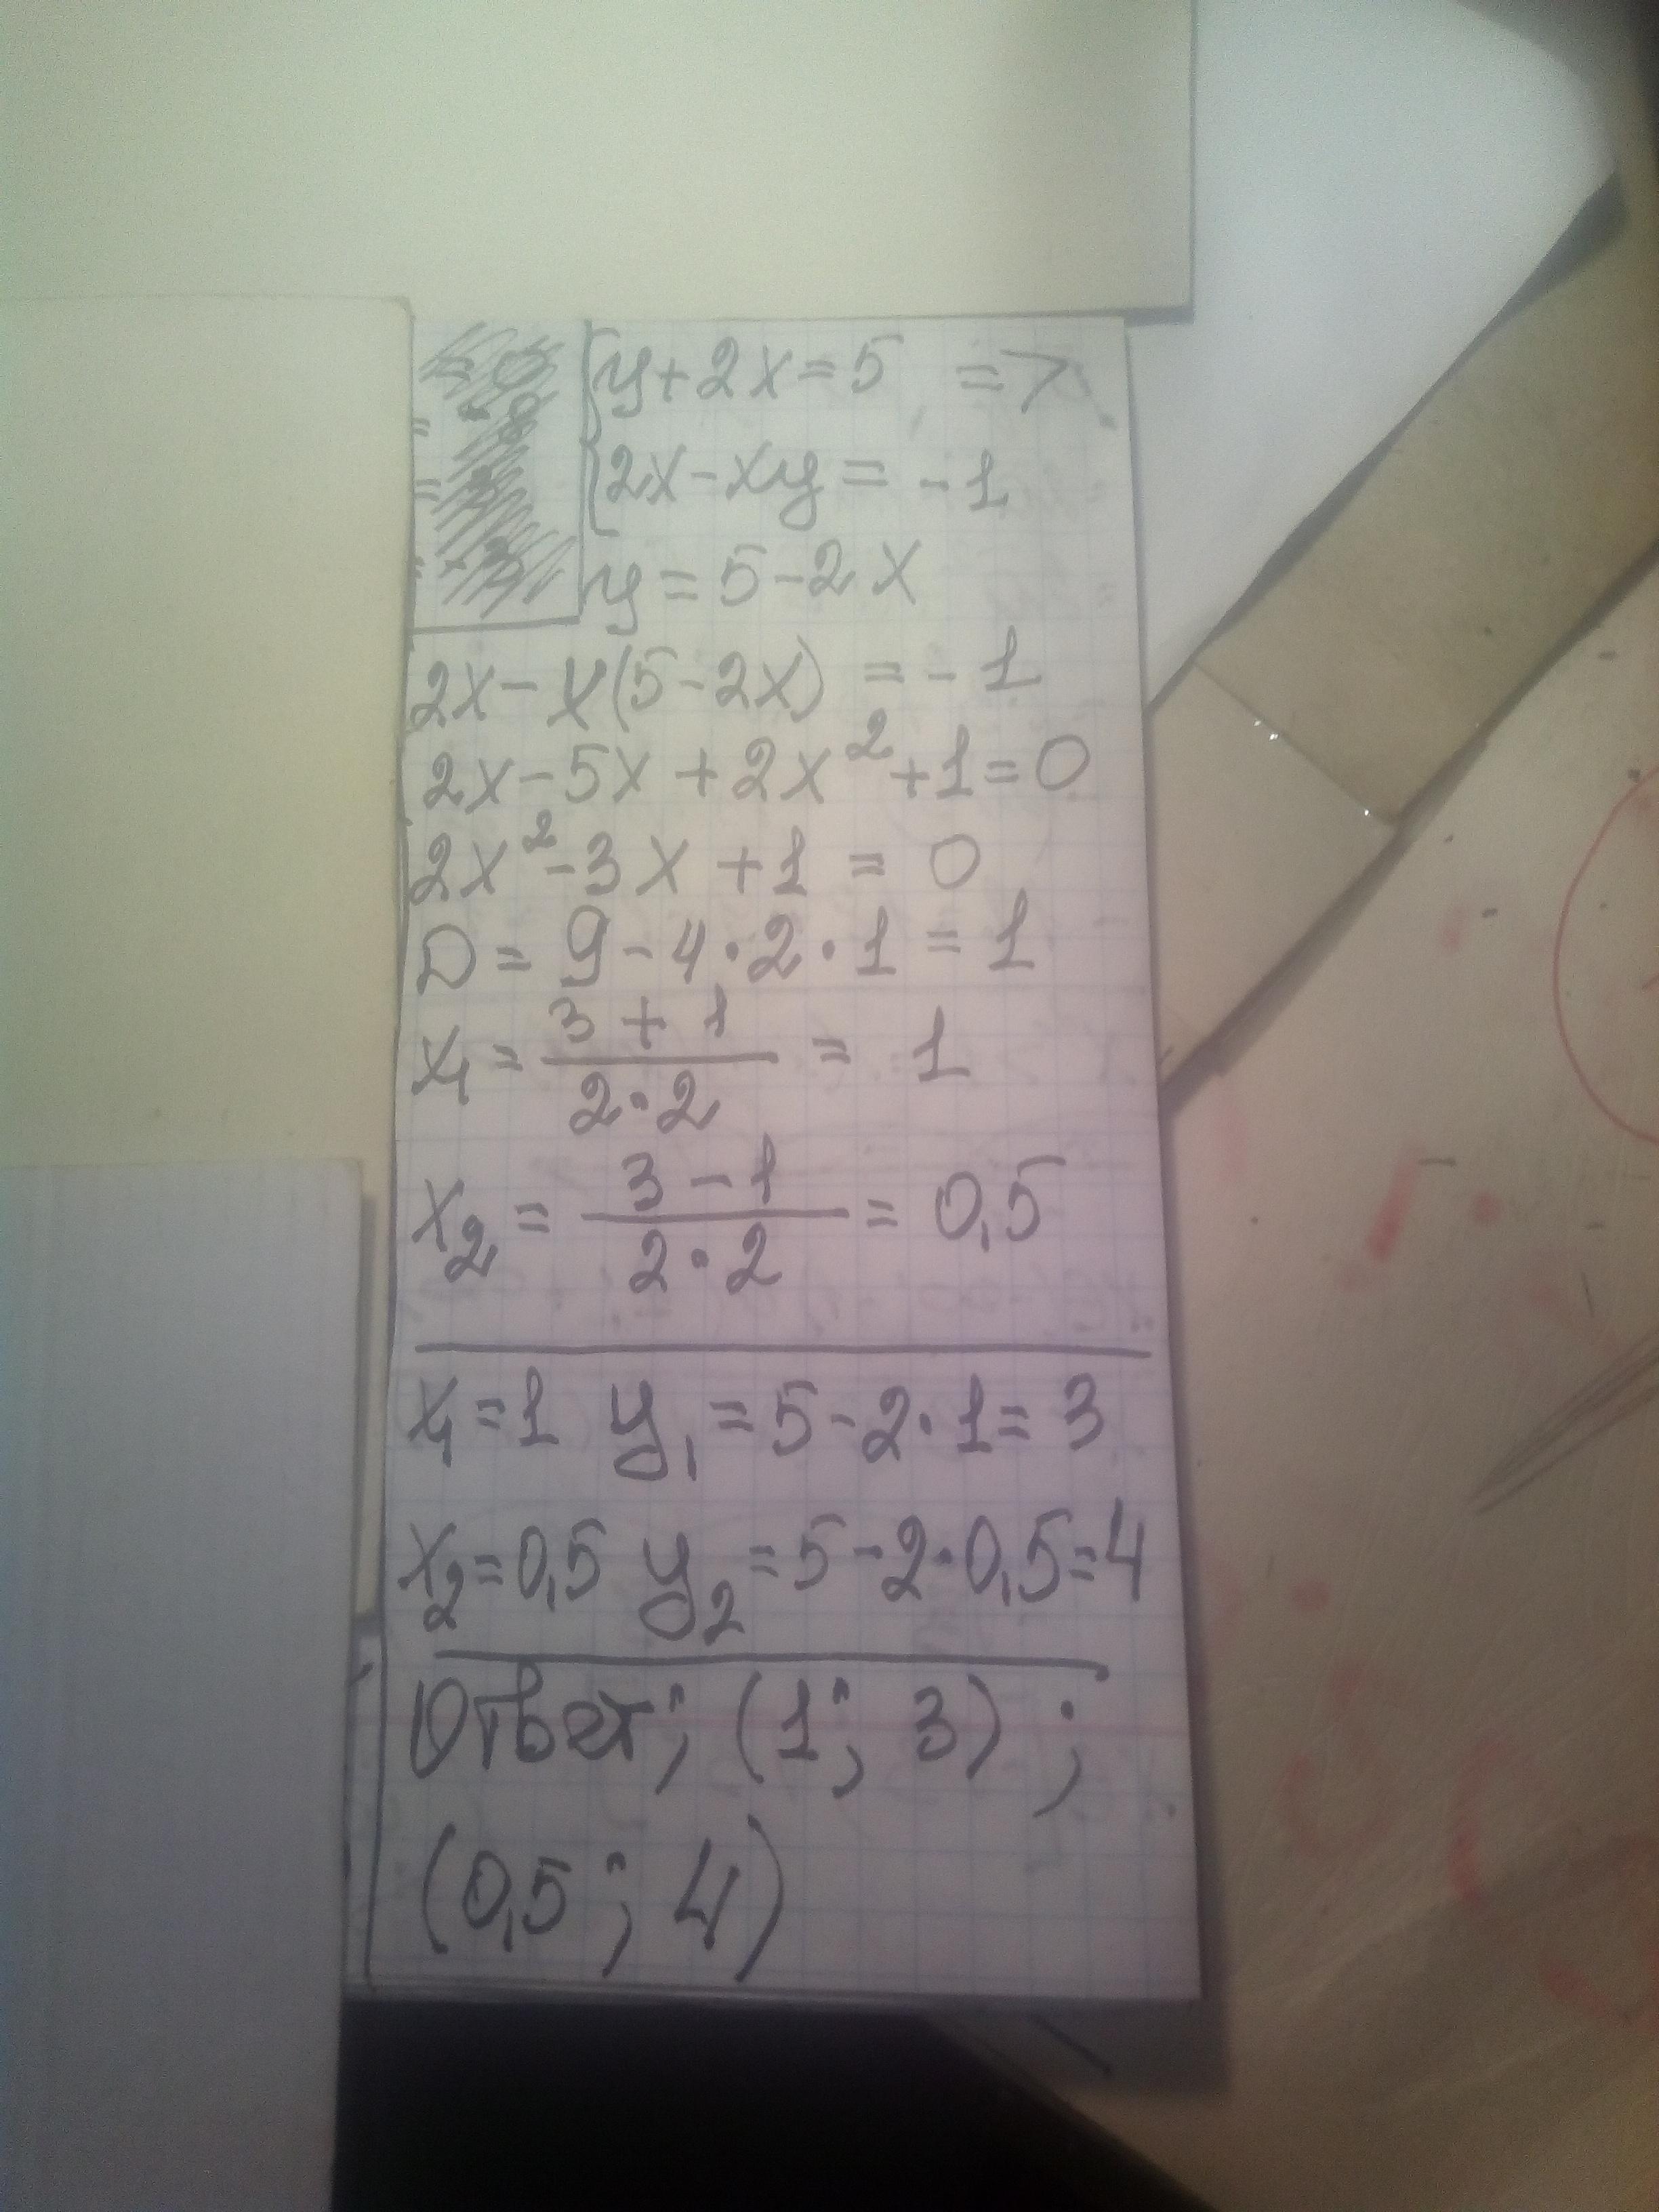 y+2x=5 =>
2x-xy=-1
y=5-2x
2x-x(5-2x)=-1
2x-5x+2x²+1=0
2x²-3x+1=0
D=9-4·2·1=1
x₁=(3+1)/(2·2)=1
x₂=(3-1)/(2·2)=0,5
x₁=1 y₁=5-2·1=3
x₂=0,5 y₂=5-2·0,5=4
Ответ; (1; 3);
(0,5; 4)